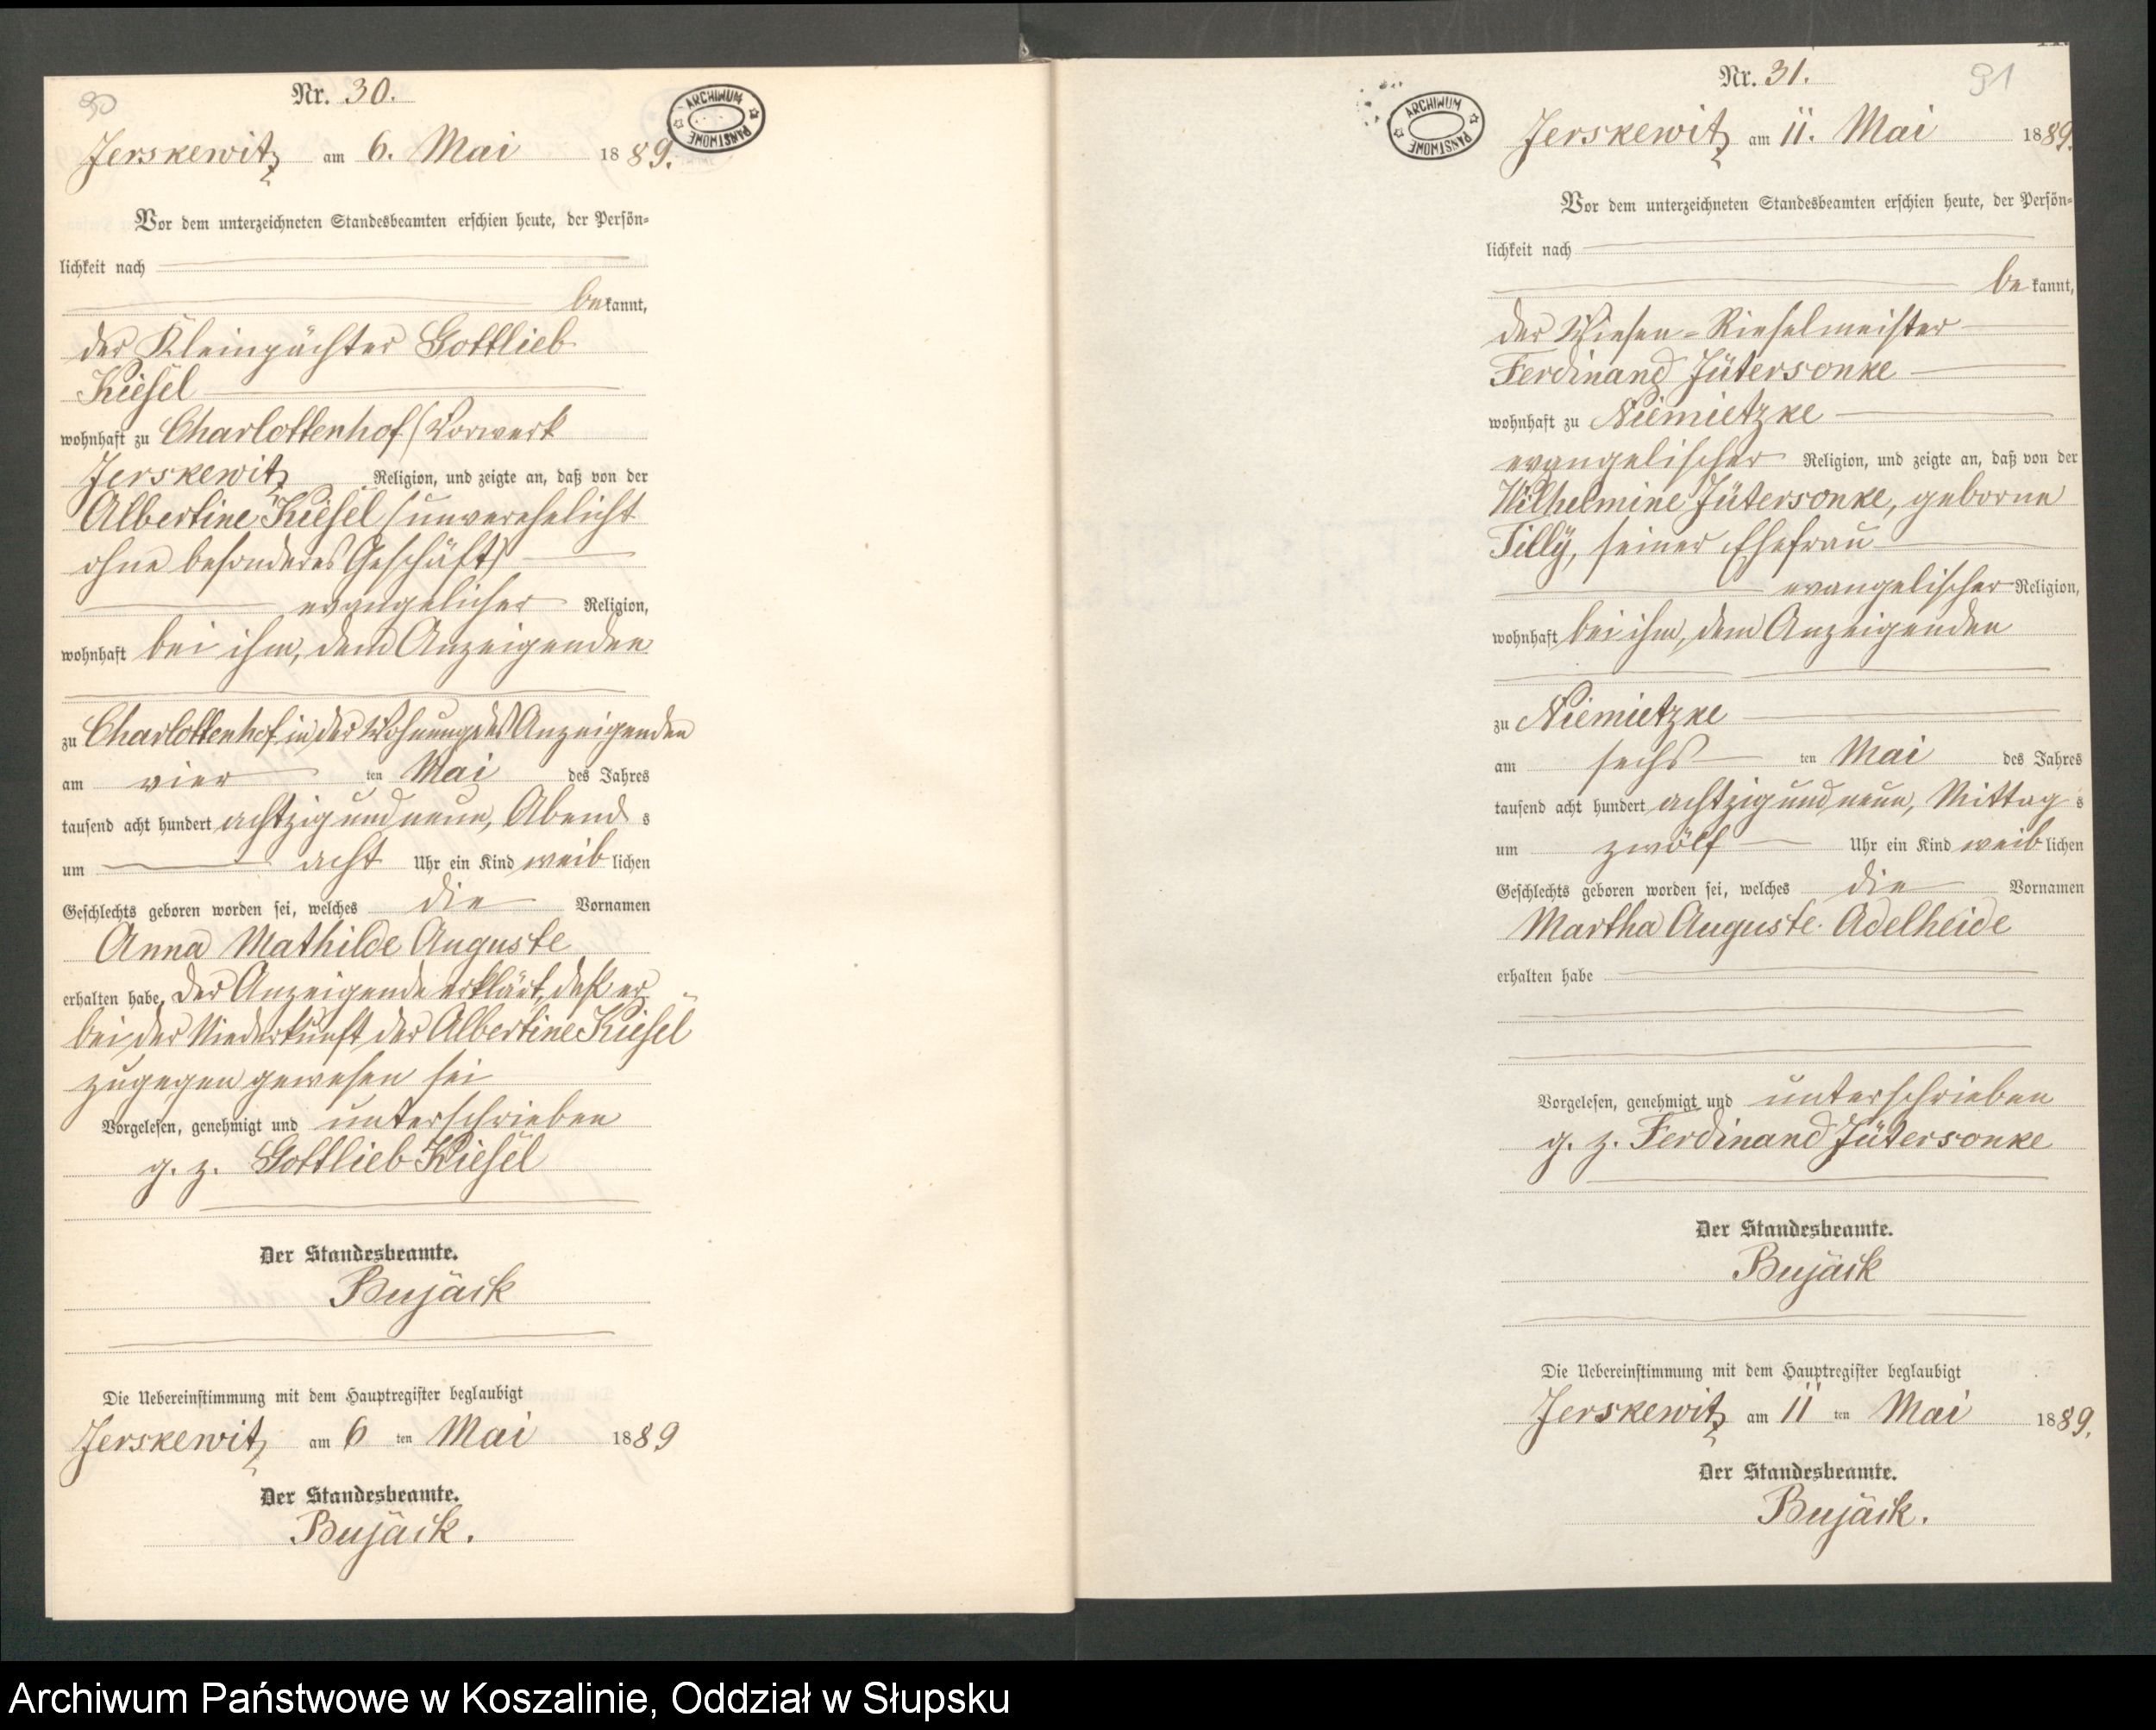 30
Nr. 30.
ARCHIWUM PAŃSTWOWE
Jerskewitz am 6. Mai 1889.
Vor dem unterzeichneten Standesbeamten erschien heute, der Persön-
lichkeit nach
bekannt,
der Kleinpächter Gottlieb
Kiesel
wohnhaft zu Charlottenhof (Vorwerk
Jerskewitz Religion, und zeigte an, daß von der
Albertine Kiesel (unverehelicht
ohne besonderes Geschäft)
evangelicher Religion,
wohnhaft bei ihm, dem Anzeigenden
zu Charlottenhof in der Wohnung des Anzeigenden
am vier ten Mai des Jahres
tausend acht hundert achtzig und neun, Abends
um acht Uhr ein Kind weiblichen
Geschlechts geboren worden sei, welches die Vornamen
Anna Mathilde Auguste
erhalten habe. Der Anzeigende erklärt, daß er
bei der Niederkunft der Albertine Kiesel
zugegen gewesen sei
Vorgelesen, genehmigt und unterschrieben
g. z. Gottlieb Kiesel
Der Standesbeamte.
Bujäck
Die Uebereinstimmung mit dem Hauptregister beglaubigt
Jerskewitz am 6 ten Mai 1889
Der Standesbeamte.
Bujäck.
Nr. 31.
31
ARCHIWUM PAŃSTWOWE
Jerskewitz am 11. Mai 1889.
Vor dem unterzeichneten Standesbeamten erschien heute, der Persön-
lichkeit nach
bekannt,
der Wiesen-Rieselmeister
Ferdinand Jütersonke
wohnhaft zu Niemietzke
evangelischer Religion, und zeigte an, daß von der
Wilhelmine Jütersonke, geborne
Tilly, seiner Ehefrau
evangelischer Religion,
wohnhaft bei ihm, dem Anzeigenden
zu Niemietzke
am sechs ten Mai des Jahres
tausend acht hundert achtzig und neun, Mittags
um zwölf Uhr ein Kind weiblichen
Geschlechts geboren worden sei, welches die Vornamen
Martha Auguste Adelheide
erhalten habe
Vorgelesen, genehmigt und unterschrieben
g. z. Ferdinand Jütersonke
Der Standesbeamte.
Bujäck
Die Uebereinstimmung mit dem Hauptregister beglaubigt
Jerskewitz am 11 ten Mai 1889.
Der Standesbeamte.
Bujäck.
Archiwum Państwowe w Koszalinie, Oddział w Słupsku